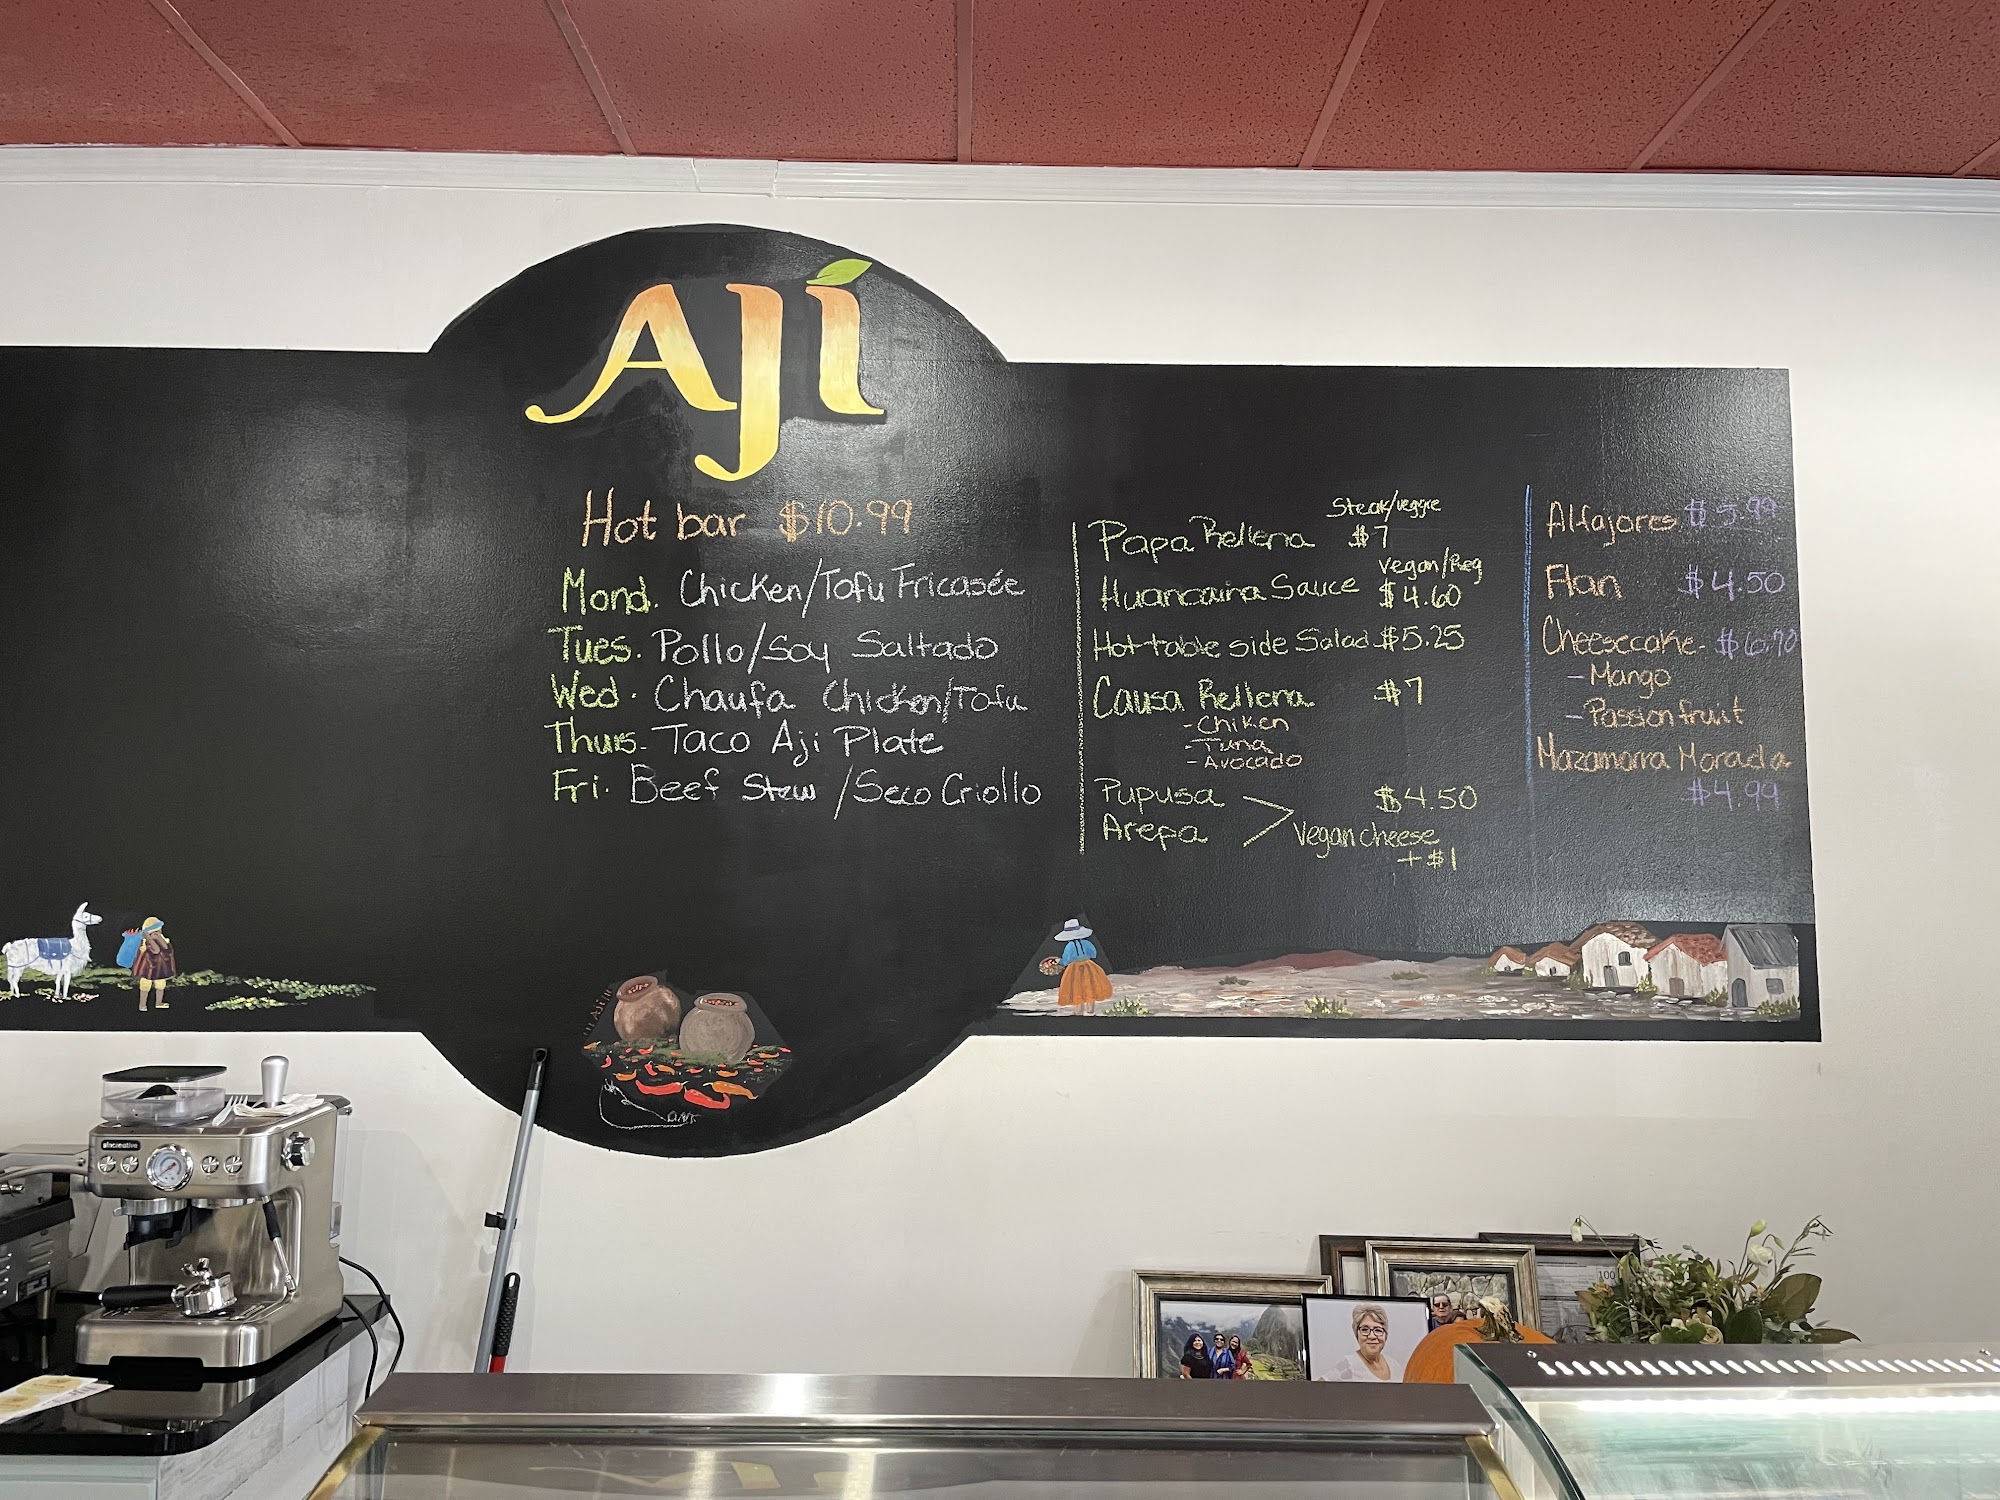 Ají
Hot bar $10.99
Mond. Chicken/Tofu Fricasée
Tues. Pollo/Soy Saltado
Wed. Chaufa Chicken/Tofu
Thurs. Taco Aji Plate
Fri. Beef Stew /Seco Criollo
Steak/veggie
Papa Rellena $7
Vegan/Reg
Huancaina Sauce $4.60
Hot table side Salad $5.25
Causa Rellena $7
- Chiken
- Tuna
- Avocado
Pupusa $4.50
Arepa > Vegan cheese
+ $1
Alfajores $5.99
Flan $4.50
Cheesecake - $6.70
- Mango
- Passion fruit
Mazamorra Morada
$4.99
100